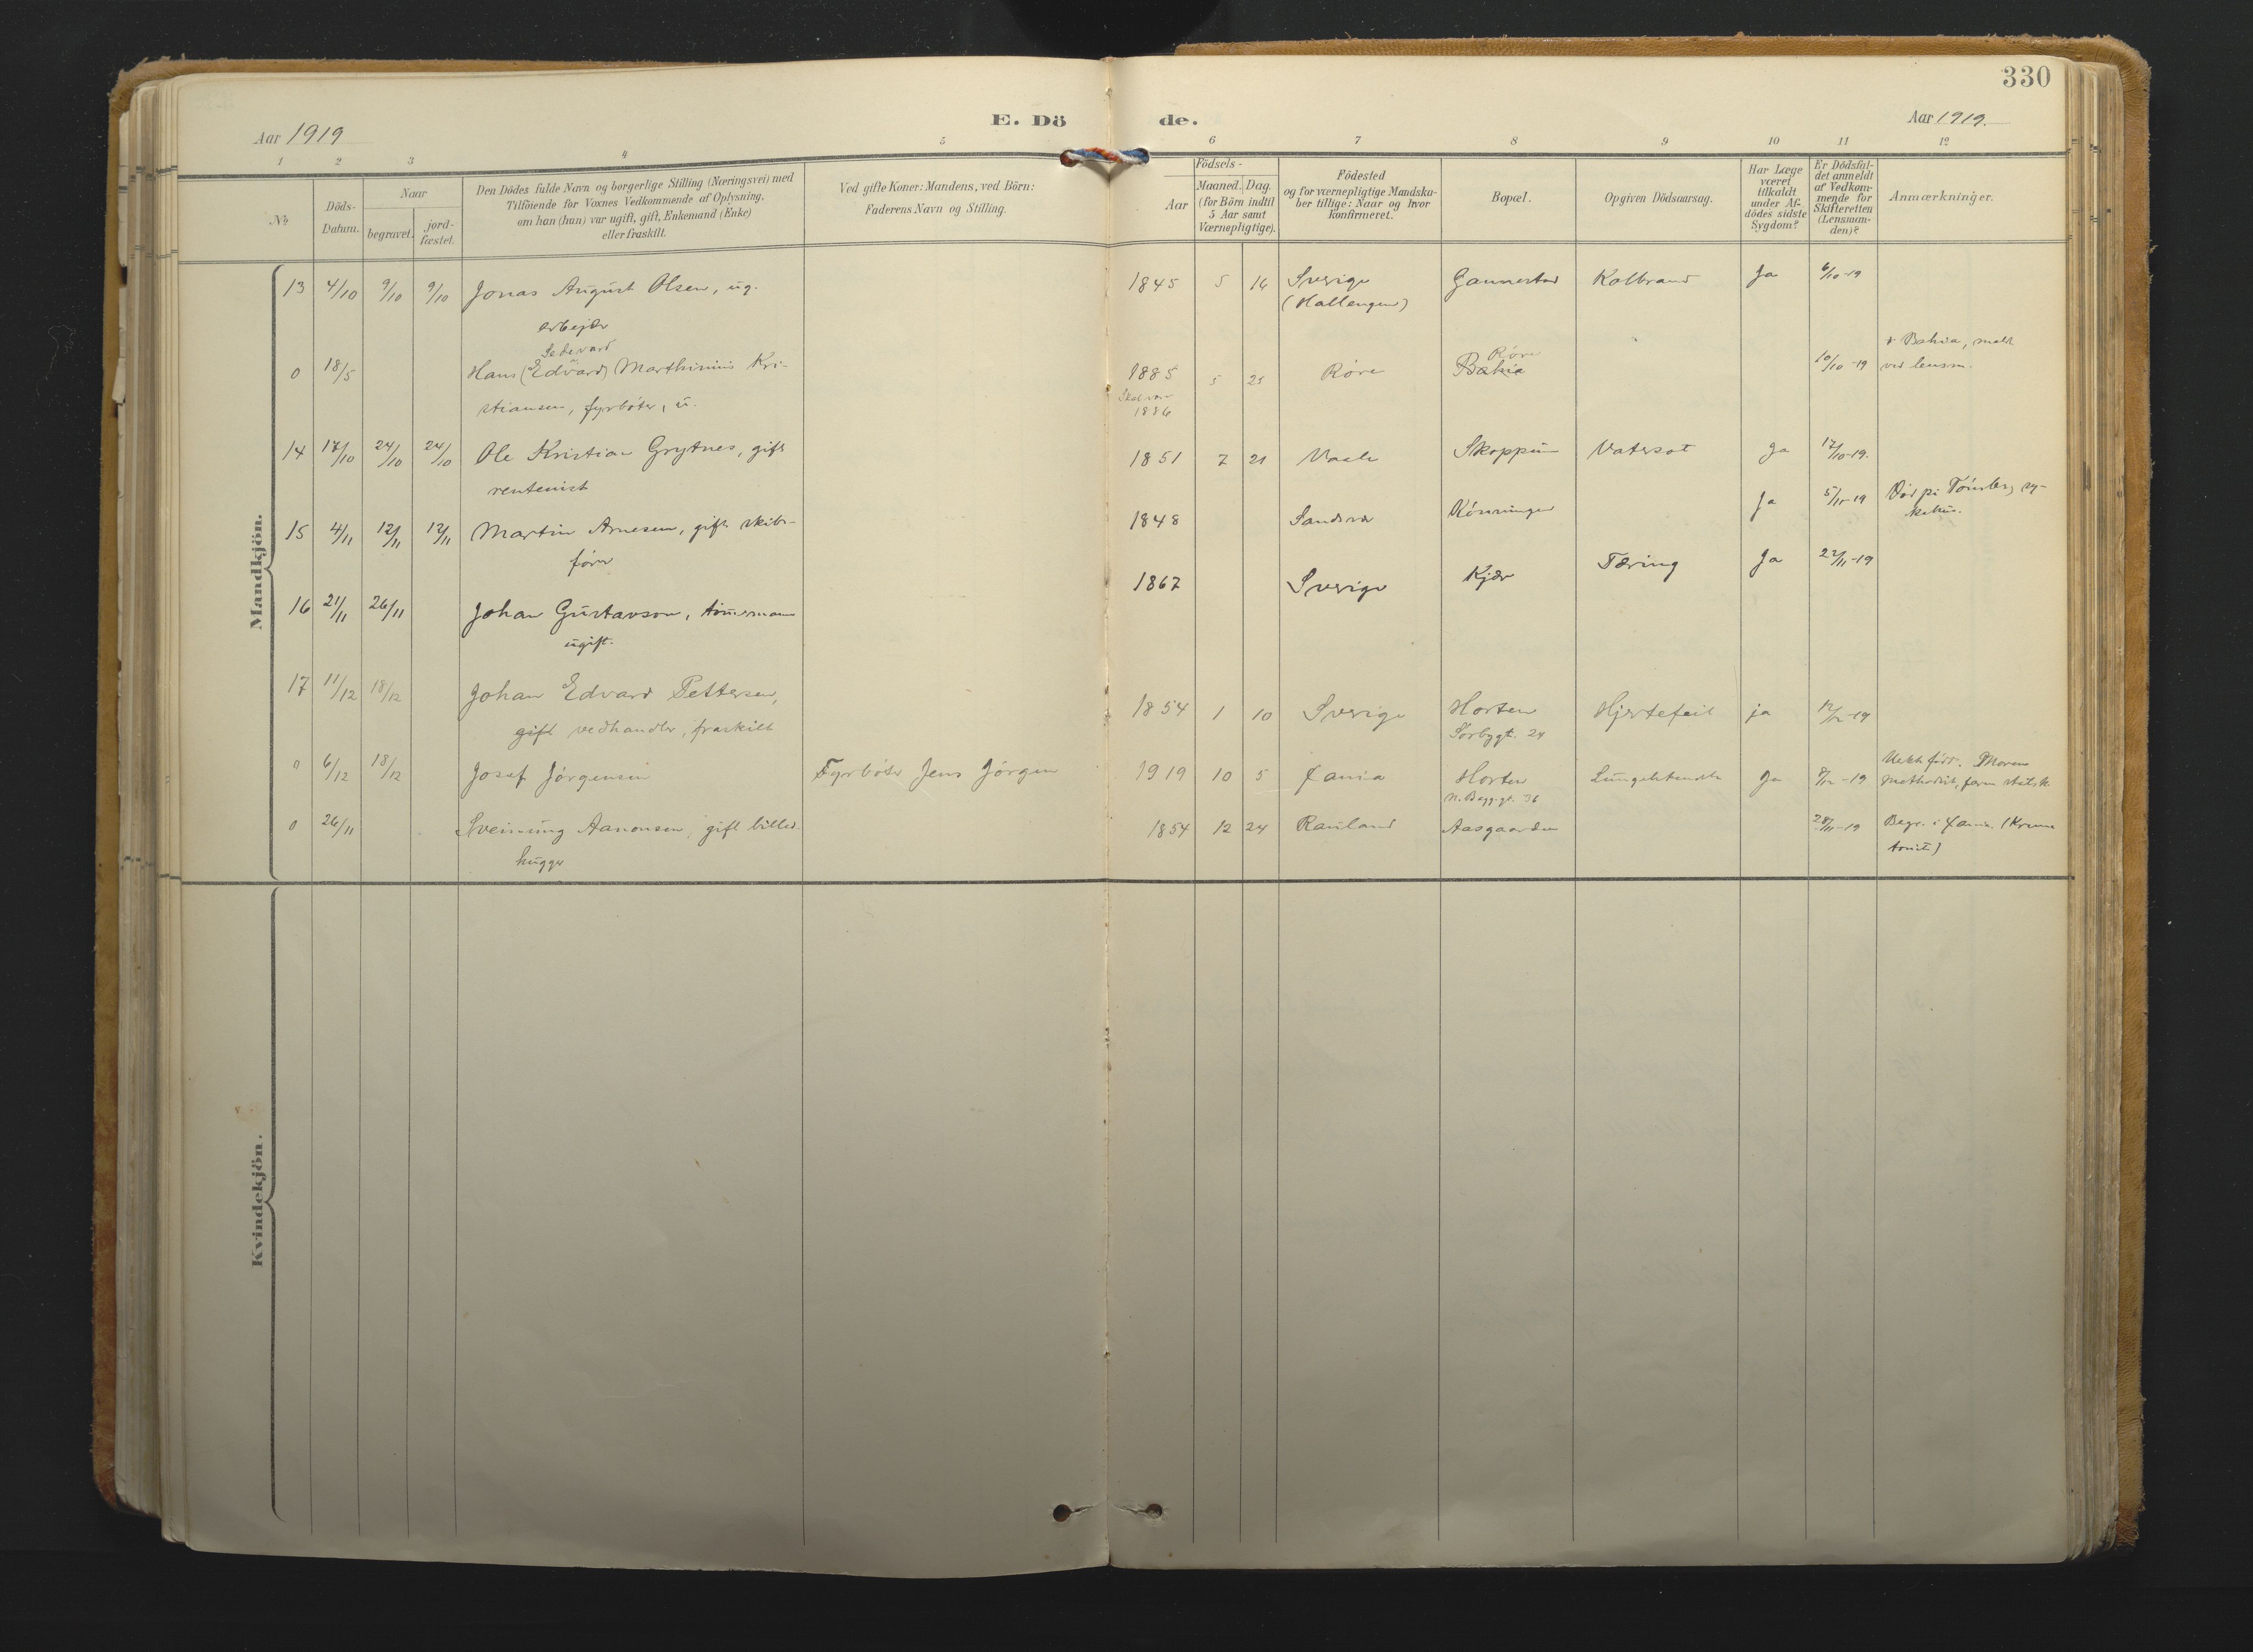 330
E. Döde.
Aar 1919
Aar 1919.
1 2 3 4 5 6 7 8 9 10 11 12
No
Döds-
Datum.
Naar
begravet.
jord-
fæstet.
Den Dödes fulde Navn og borgerlige Stilling (Næringsvei) med
Tilföiende for Voxnes Vedkommende af Oplysning.
om han (hun) var ugift, gift, Enkemand (Enke)
eller fraskilt.
Ved gifte Koner: Mandens, ved Börn:
Faderens Navn og Stilling.
Födsels-
Aar
Maaned. Dag.
(for Börn indtil
5 Aar samt
Værnepligtige).
Födested
og for værnepligtige Mandska-
ber tillige: Naar og hvor
konfirmeret.
Bopæl.
Opgiven Dödsaarsag.
Har Læge
været
tilkaldt
under Af-
dödes sidste
Sygdom?
Er Dödsfal-
det anmeldt
af Vedkom-
mende for
Skifteretten
(Lensman-
den)?
Anmærkninger.
Mandkjön.
13 4/10 9/10 9/10 Jonas August Olsen, ug. 1845 5 16 Sverige Gannestad Kolbrand Ja 6/10-19
(Hallengen)
arbejder
0 18/5 Hans (Edvard) Marthinius Kri- 1885 5 21 Röre Bahia 10/10-19
Röre
stiansen, fyrböter, u.
1886
+ Bahia, meldt
ved lensm.
14 17/10 24/10 24/10 Ole Kristian Grytnes, gift 1851 7 21 Vaale Skoppum Vatersot Ja 17/10-19.
rentenist
15 4/11 12/11 12/11 Martin Arnesen, gift skibs- 1848 Ja 5/11-19
förer
16 21/11 26/11 Johan Gustavson, tömermann 1867 Sverige Kjær Tæring Ja 22/11-19
ugift.
17 11/12 18/12 Johan Edvard Pettersen, 1854 1 10 Sverige Horten Hjertefeil ja 12/12-19
gift vedhandler, fraskilt Sorbygt. 24
0 6/12 18/12 Josef Jörgensen Fyrböter Jens Jörgen 1919 10 5 Xania Horten Ja 8/12-19
0 26/11 Sveinung Aanonsen, gift billed- 1854 12 24 Rauland Aasgaarden 28/11-19 Begr. i Xania (Krema
hugger
Kvindekjön.